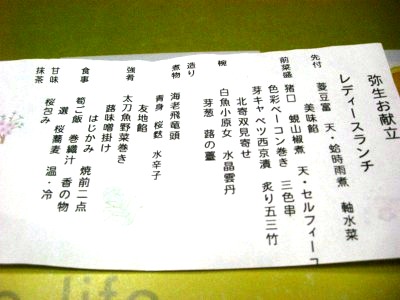 弥生お献立
レディースランチ
先付 菱豆富 天・蛤時雨煮 軸水菜
美味餡
前菜盛 猪口 蜆山椒煮 天・セルフィーユ
色彩ベーコン巻き 三色串
芽キャベツ西京漬 炙り五三竹
北寄双見寄せ
椀 白魚小原女 水晶雲丹
芽葱 蕗の薹
造り
煮物 海老飛竜頭
青身 桜麩 水辛子
友地餡
強肴 太刀魚野菜巻き
蕗味噌掛け
はじかみ 焼前二点
食事 筍ご飯 巻繊汁 香の物
選 桜蕎麦 温・冷
甘味 桜包み
抹茶
life